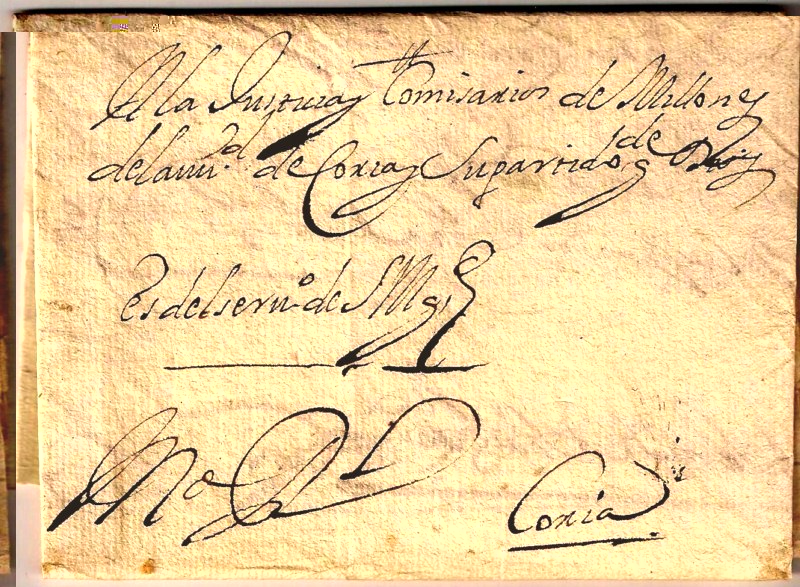 A la Justicia y Comisarios de Millones
de la ciu.d de Coria y Su partido g.de Dios
es del serui.o de S Mg.
Coria